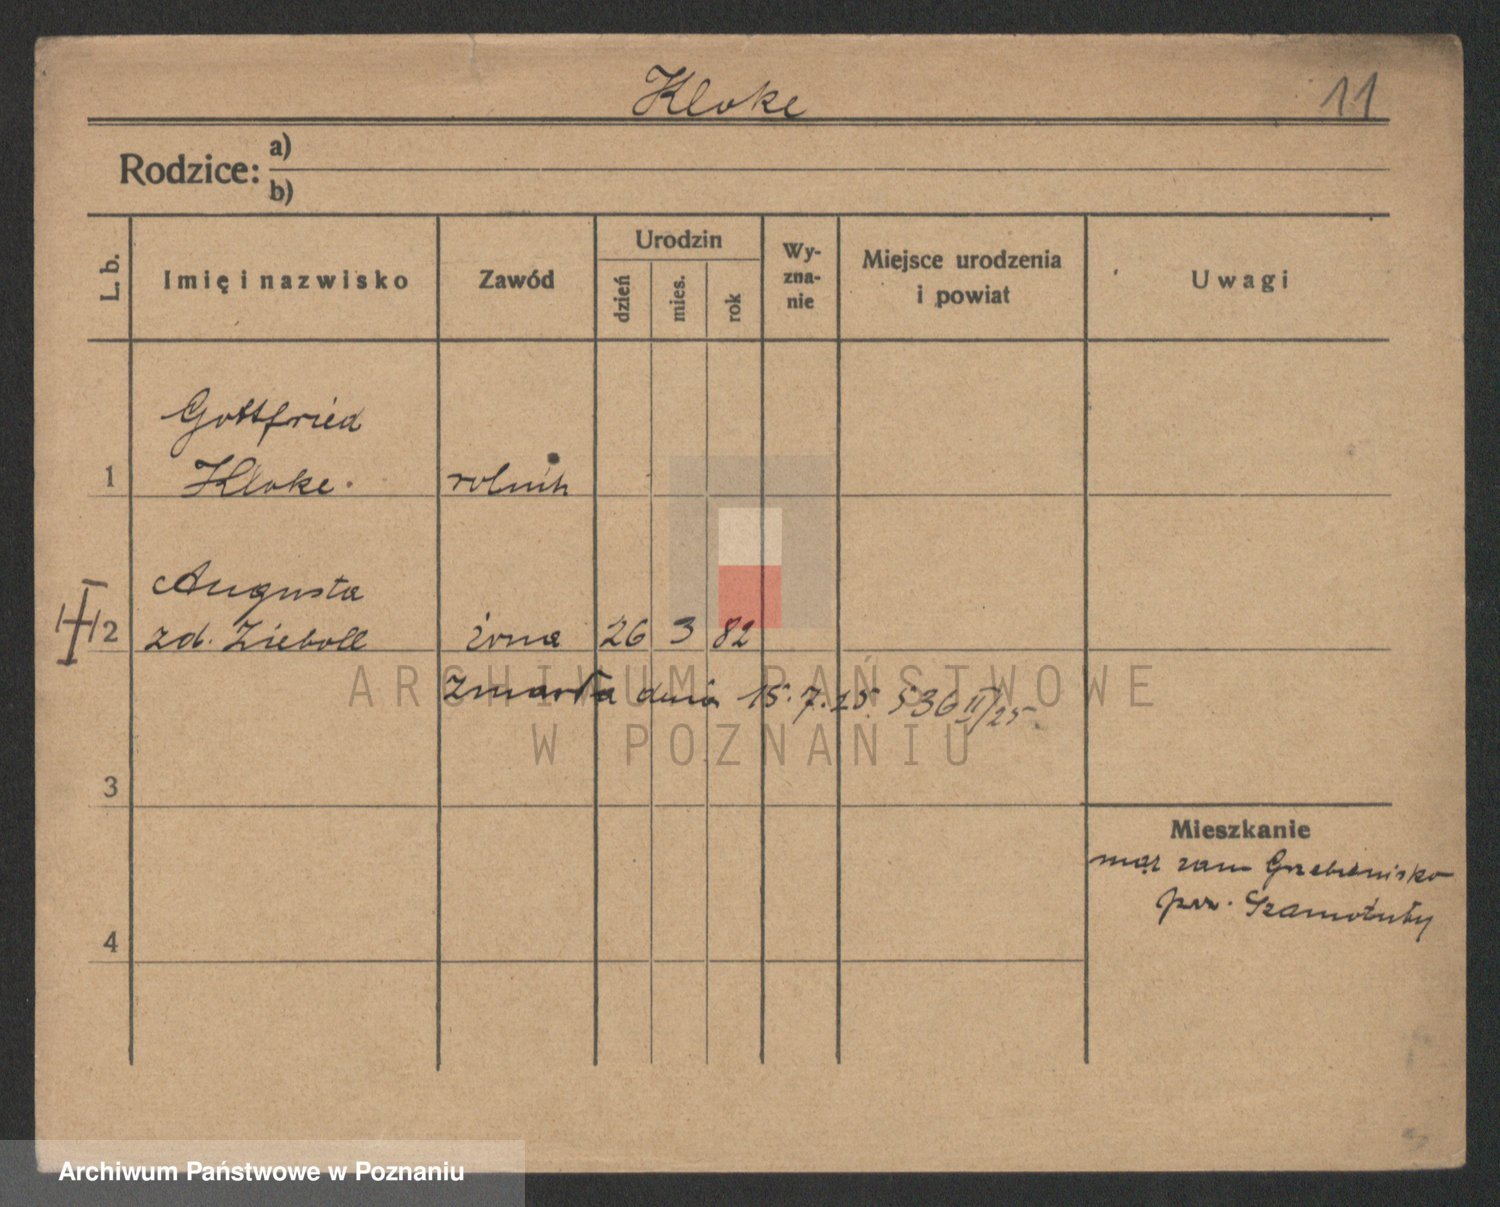 Kloke
11
Rodzice: a)
b)
L. b.
Imię i nazwisko
Zawód
Urodzin
dzień
mies.
rok
Wy-
zna-
nie
Miejsce urodzenia
i powiat
Uwagi
Gottfried
1 Kloke. rolnik
Augusta
2 zd. Zieboll żona 26 3 82
zmarła dnia 15.7.25. 536 II/25.
3
Mieszkanie
mąż zam Grzebienisko
pow. Szamotuły
4
ARCHIWUM PAŃSTWOWE
W POZNANIU
Archiwum Państwowe w Poznaniu